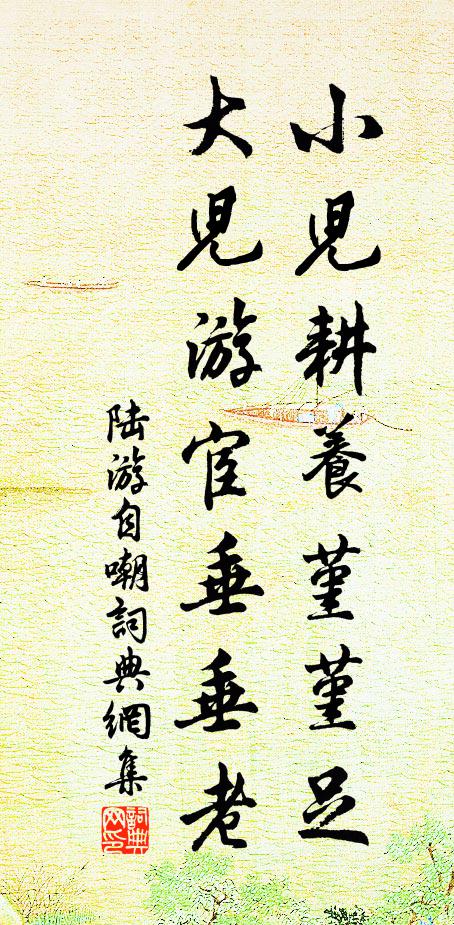 小児耕養堇堇足
大児游宦垂垂老
陆游自嘲詞典網集
詞典
网印